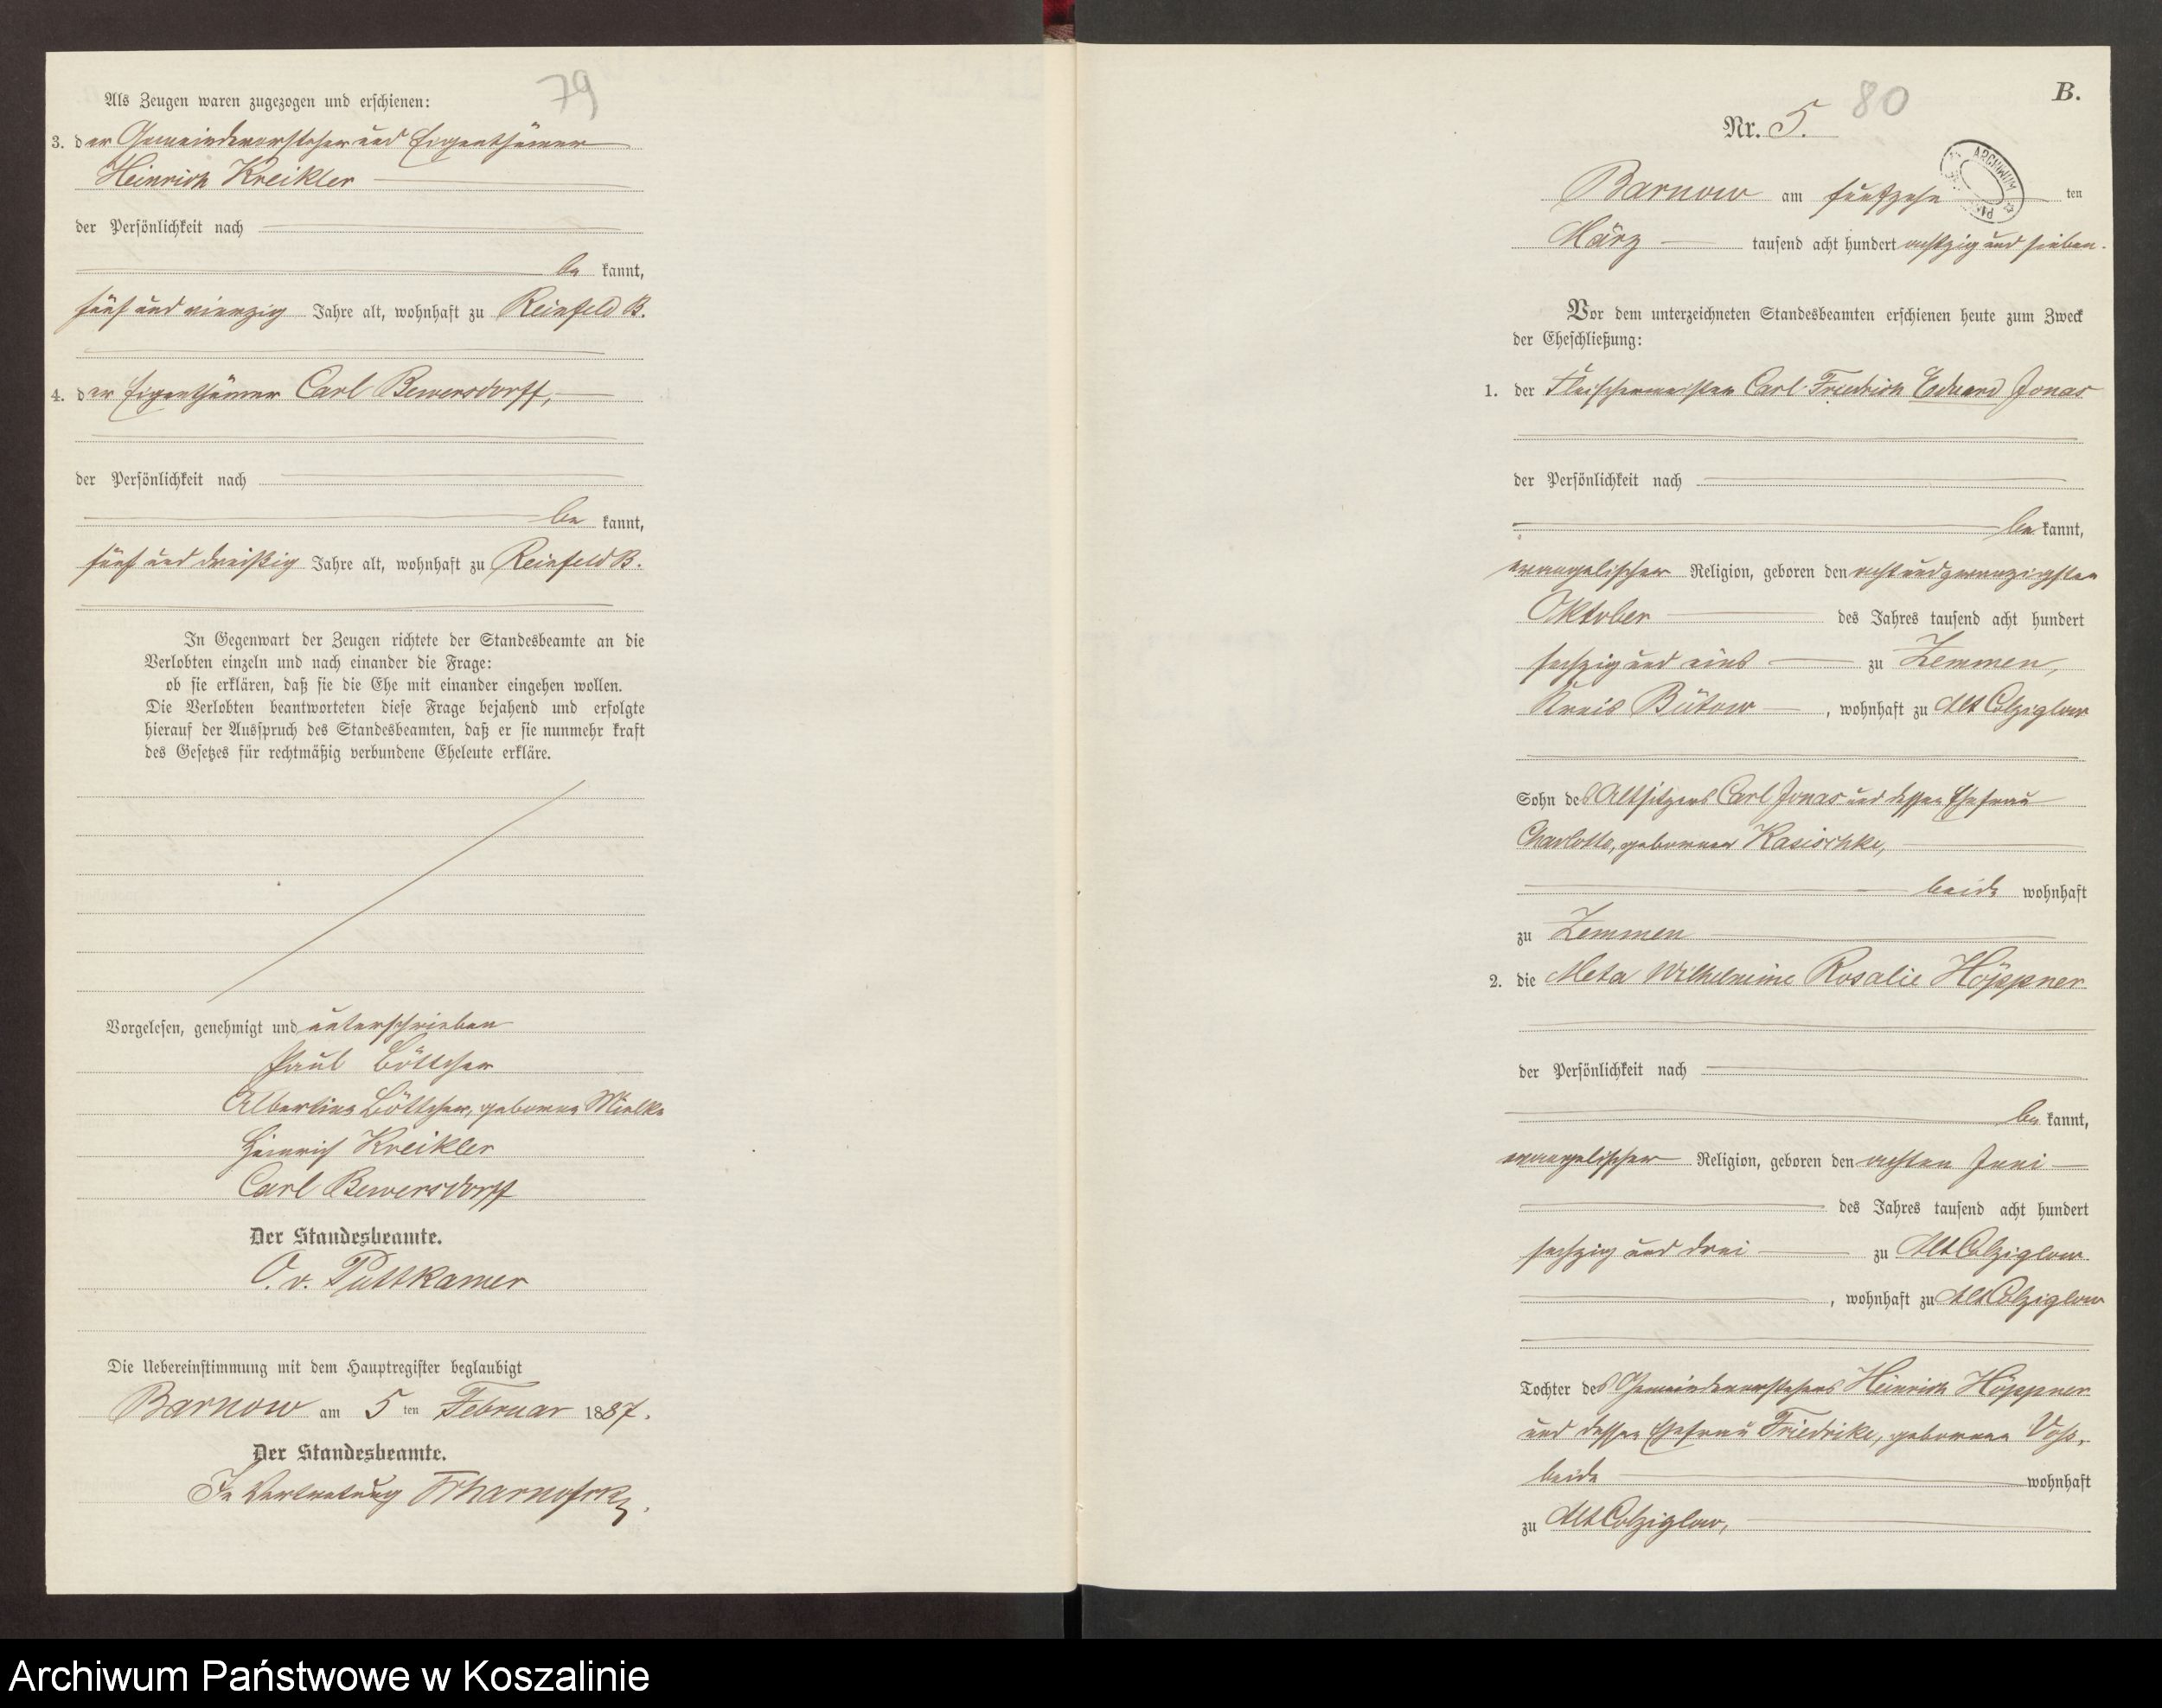 79
Als Zeugen waren zugezogen und erschienen:
3. der Gemeindevorsteher und Eigenthümer
Heinrich Kreikler
der Persönlichkeit nach
be kannt,
fünf und vierzig Jahre alt, wohnhaft zu Reinfeld B.
4. der Eigenthümer Carl Bewersdorff,
der Persönlichkeit nach
be kannt,
fünf und dreißig Jahre alt, wohnhaft zu Reinfeld B.
In Gegenwart der Zeugen richtete der Standesbeamte an die
Verlobten einzeln und nach einander die Frage:
ob sie erklären, daß sie die Ehe mit einander eingehen wollen.
Die Verlobten beantworteten diese Frage bejahend und erfolgte
hierauf der Ausspruch des Standesbeamten, daß er sie nunmehr kraft
des Gesetzes für rechtmäßig verbundene Eheleute erkläre.
Vorgelesen, genehmigt und unterschrieben
Paul Böttcher
Albertine Böttcher, geborene Mielke
Heinrich Kreikler
Carl Bewersdorff
Der Standesbeamte.
O. v. Puttkamer
Die Uebereinstimmung mit dem Hauptregister beglaubigt
Barnow am 5 ten Februar 1887.
Der Standesbeamte.
In Vertretung
80
B.
Nr. 5.
ARCHIWUM
Barnow am fünfzehn ten
März tausend acht hundert achtzig und sieben.
Vor dem unterzeichneten Standesbeamten erschienen heute zum Zweck
der Eheschließung:
1. der Fleischermeister Carl Friedrich Eduard Jonas
der Persönlichkeit nach
be kannt,
evangelischer Religion, geboren den achtundzwanzigsten
Oktober des Jahres tausend acht hundert
sechzig und eins zu Zemmen,
Kreis Bütow, wohnhaft zu Alt Colziglow
Sohn des Altsitzers Carl Jonas und dessen Ehefrau
Charlotte, geborener Kasischke,
beide wohnhaft
zu Zemmen
2. die Meta Wilhelmine Rosalie Höppner
der Persönlichkeit nach
be kannt,
evangelischer Religion, geboren den achten Juni
des Jahres tausend acht hundert
sechzig und drei zu Alt Colziglow
, wohnhaft zu Alt Colziglow
Tochter des Gemeindevorstehers Heinrich Höppner
und dessen Ehefrau Friedrike, geborener Voß,
beide wohnhaft
zu Alt Colziglow,
Archiwum Państwowe w Koszalinie